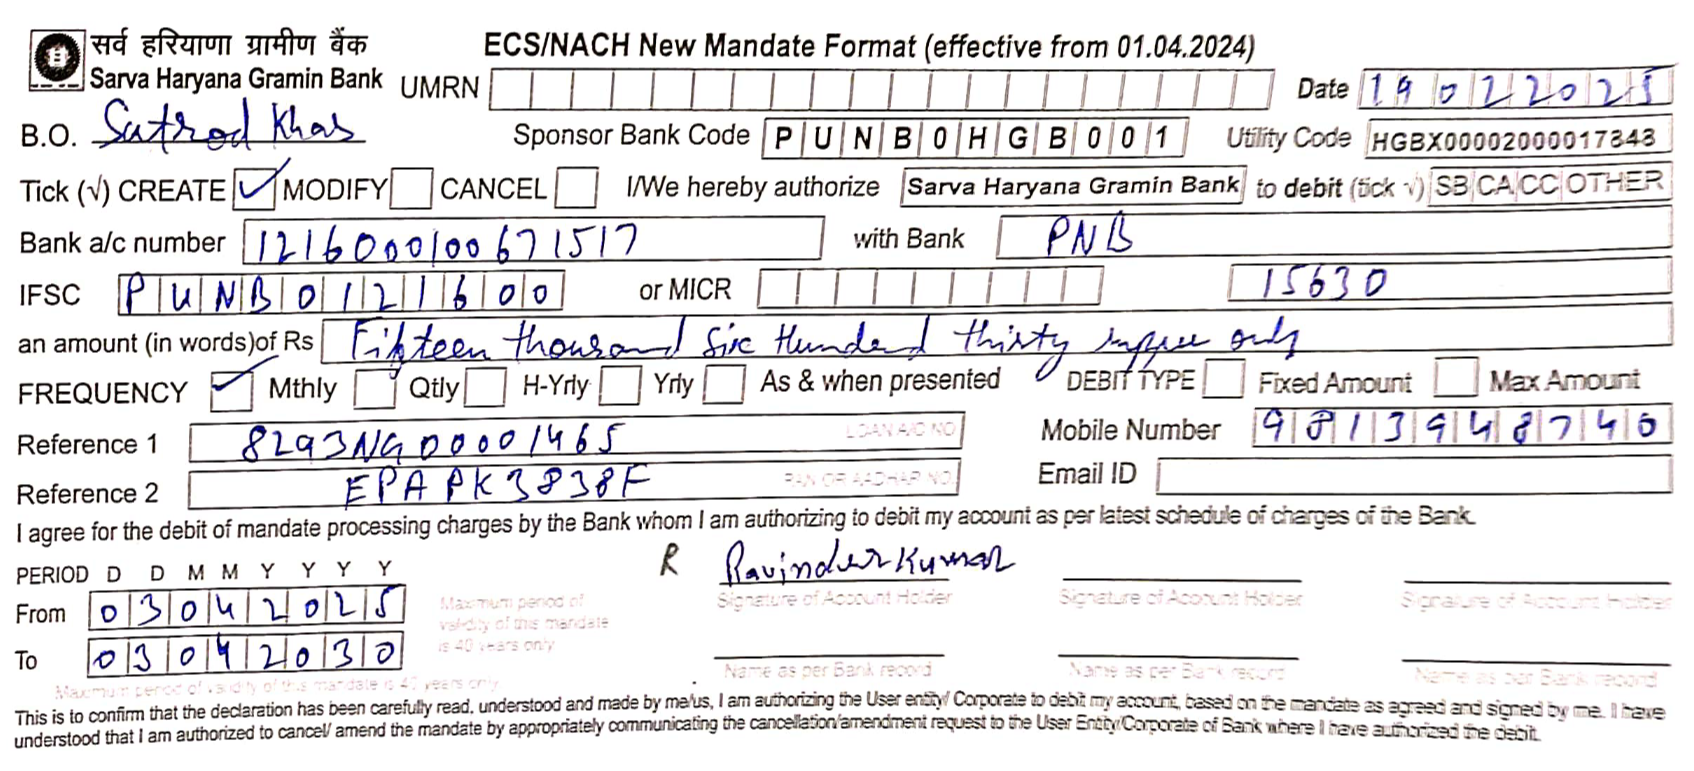 सर्व हरियाणा ग्रामीण बैंक
Sarva Haryana Gramin Bank
ECS/NACH New Mandate Format (effective from 01.04.2024)
UMRN
Date 19022025
B.O. Satrod Khas
Sponsor Bank Code PUNB0HGB001
Utility Code HGBX00002000017343
Tick (√) CREATE ✓ MODIFY CANCEL I/We hereby authorize Sarva Haryana Gramin Bank to debit (tick √) SB CA CC OTHER
Bank a/c number 1216000100671517 with Bank PNB
IFSC PUNB0121600 or MICR 15630
an amount (in words)of Rs Fifteen thousand Six Hundred thirty rupee only
FREQUENCY ✓ Mthly Qtly H-Yrly Yrly As & when presented DEBIT TYPE Fixed Amount Max Amount
Reference 1 8293NG00001465 LOAN A/C NO Mobile Number 9813948740
Reference 2 EPAPK3838F PAN OR AADHAR NO. Email ID
I agree for the debit of mandate processing charges by the Bank whom I am authorizing to debit my account as per latest schedule of charges of the Bank.
PERIOD D D M M Y Y Y Y
R Ravinder Kumar
From 03042025
Maximum period of validity of this mandate is 40 years only
Signature of Account Holder Signature of Account Holder Signature of Account Holder
To 03042030
Name as per Bank record Name as per Bank record Name as per Bank record
Maximum period of validity of this mandate is 40 years only
This is to confirm that the declaration has been carefully read, understood and made by me/us, I am authorizing the User entity/ Corporate to debit my account, based on the mandate as agreed and signed by me. I have
understood that I am authorized to cancel/ amend the mandate by appropriately communicating the cancellation/amendment request to the User Entity/Corporate of Bank where I have authorized the debit.